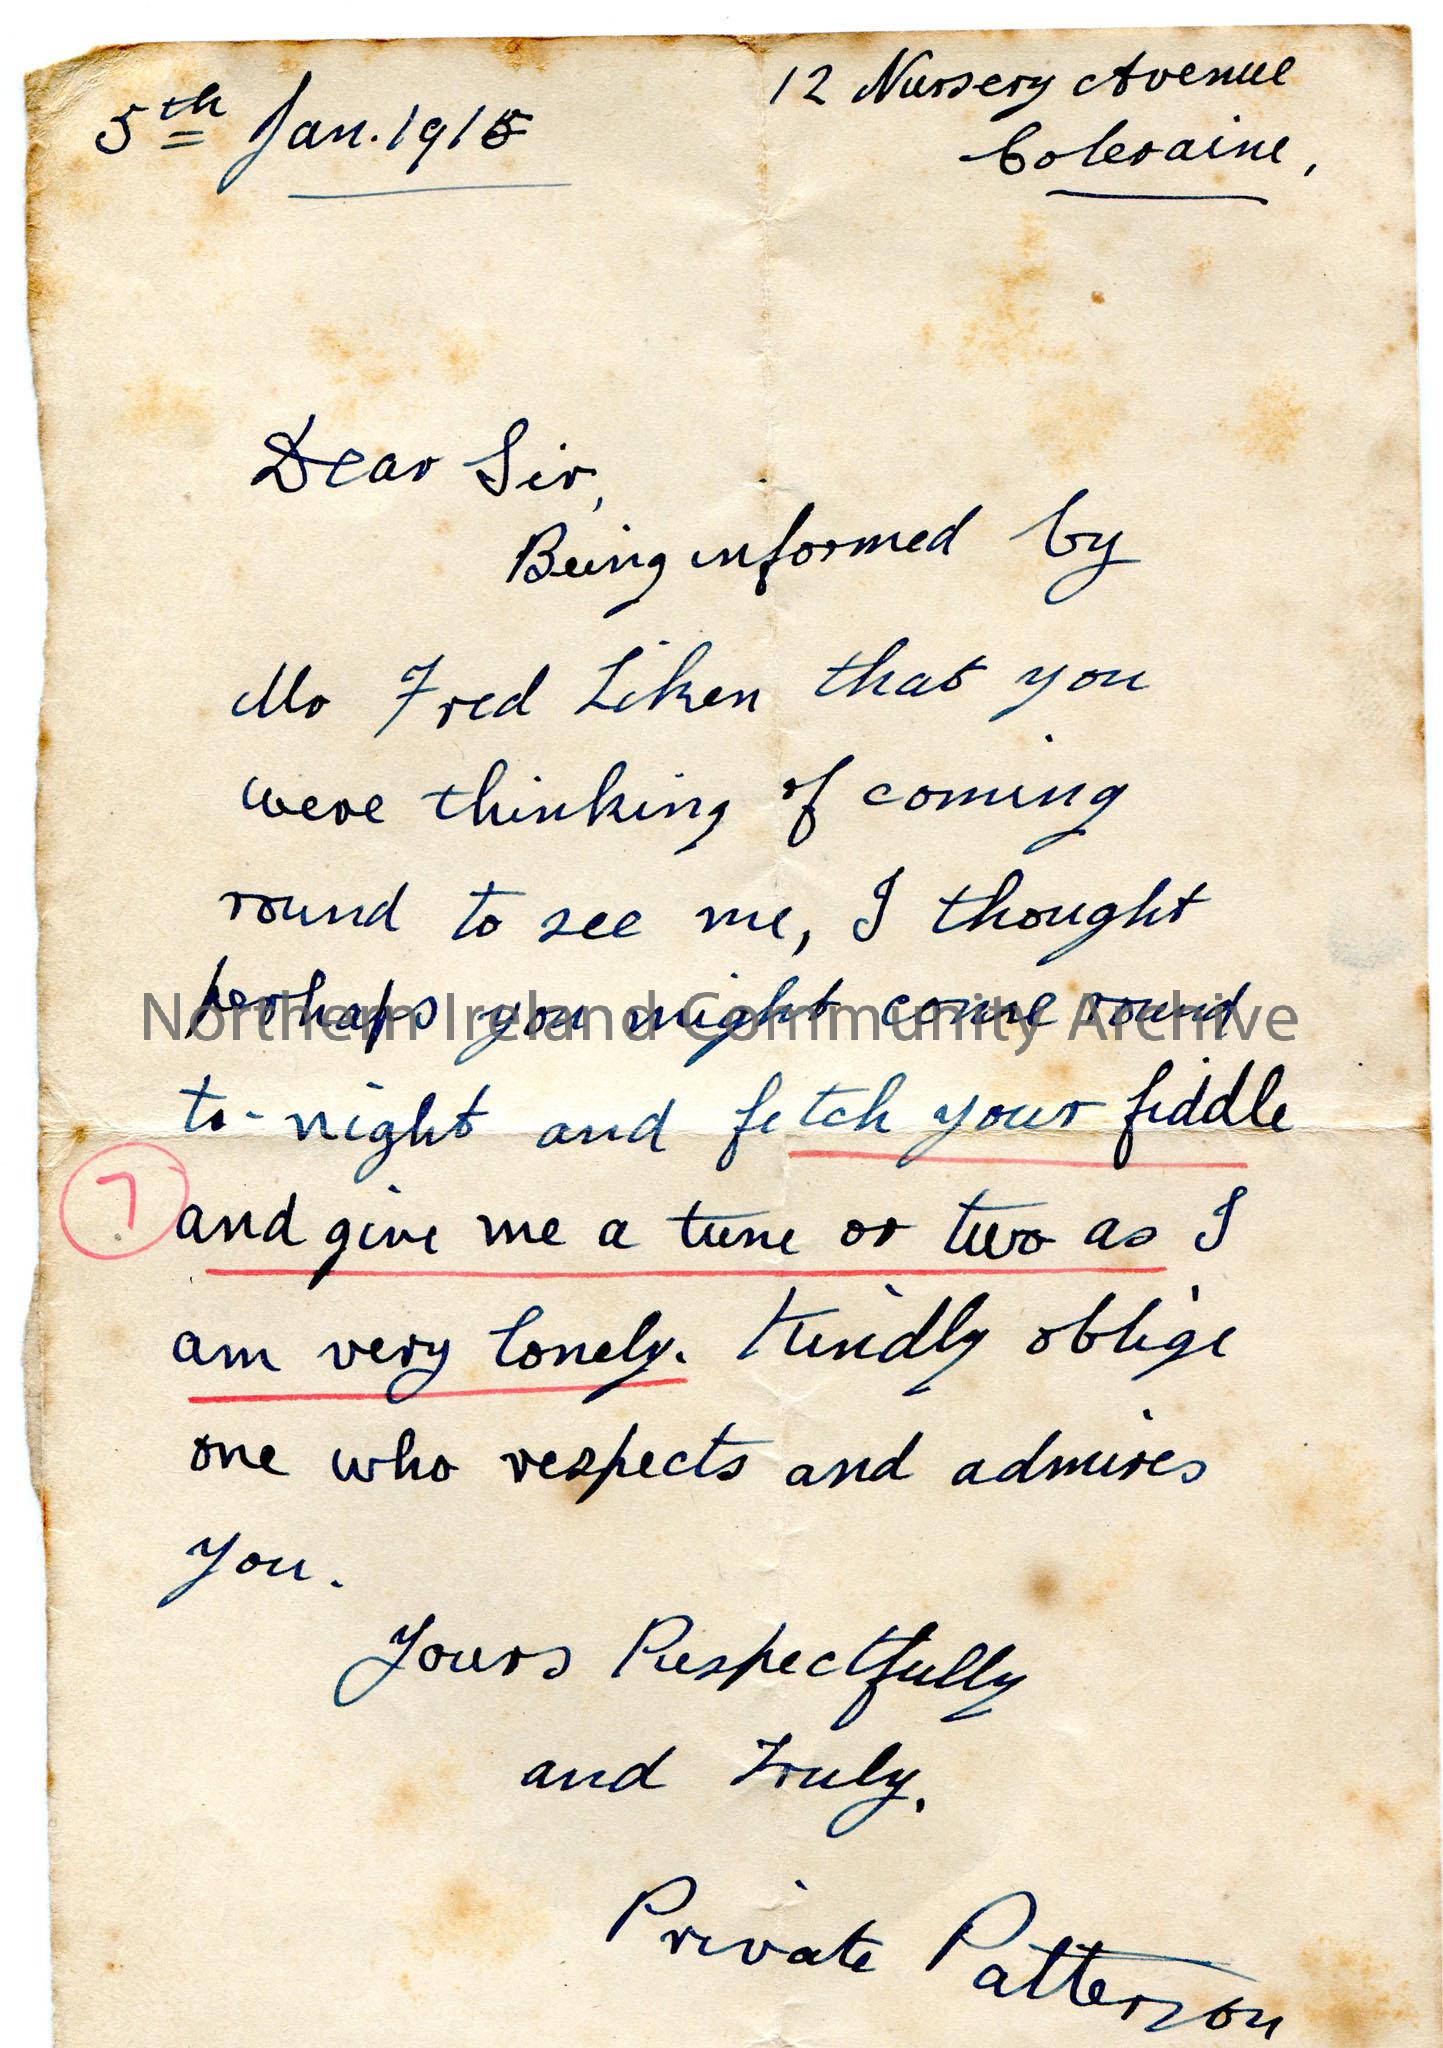 12 Nursery Avenue
5th Jan. 1915
Coleraine,
Dear Sir,
Being informed by
Mr Fred Liken that you
were thinking of coming
round to see me, I thought
perhaps you might come round
Northern Ireland Community Archive
to-night and fetch your fiddle
7
and give me a tune or two as I
am very lonely. Kindly oblige
one who respects and admires
you.
Yours Respectfully
and Truly.
Private Patterson